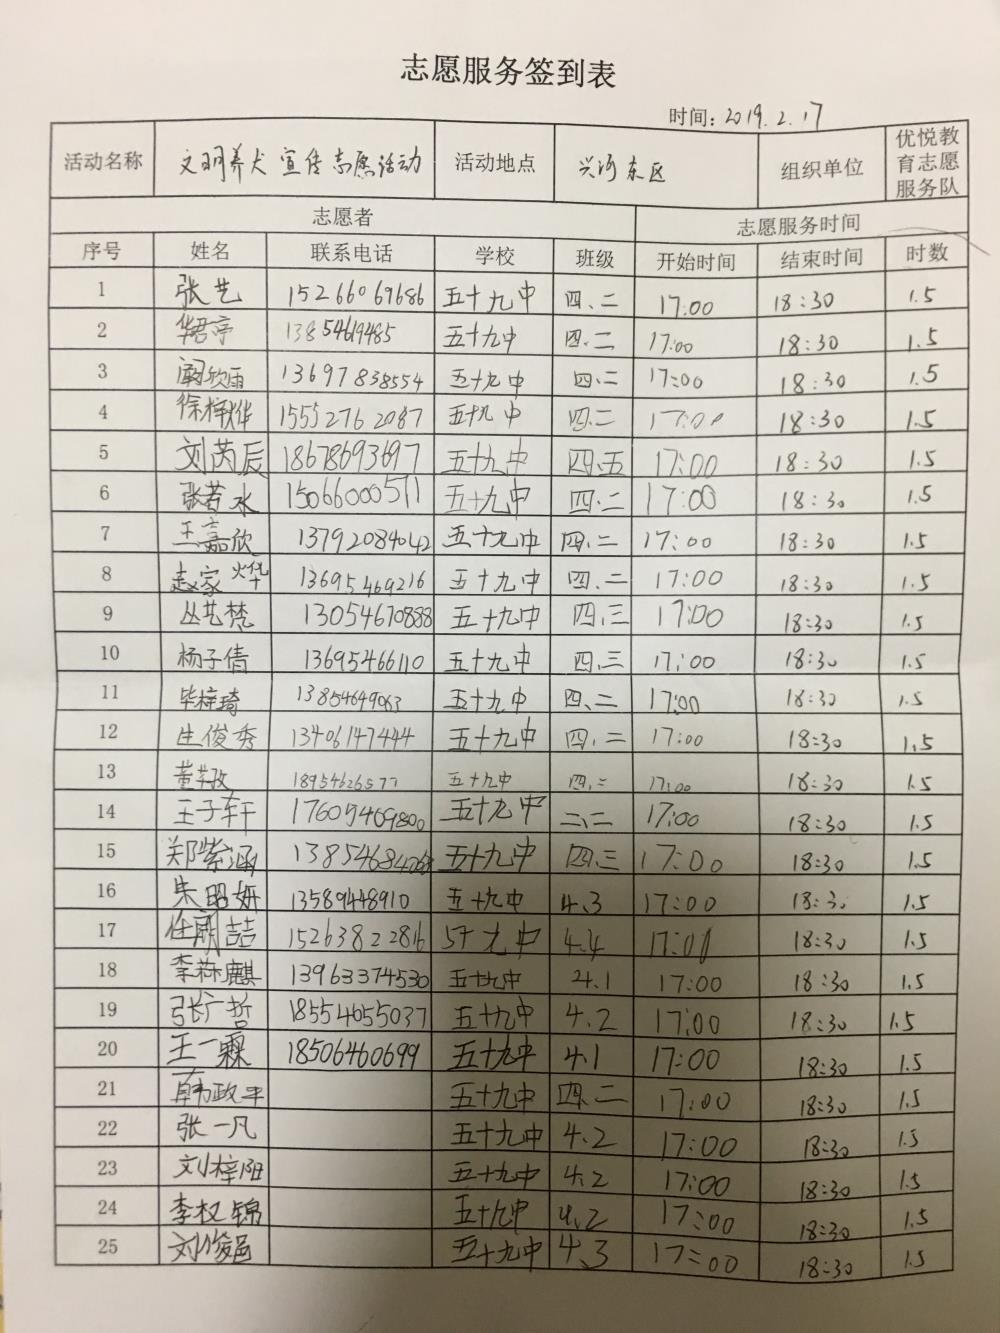 志愿服务签到表
时间：2019.2.17
活动名称 文明养犬宣传志愿活动 活动地点 兴河东区 组织单位 优悦教育志愿服务队
志愿者 志愿服务时间
序号 姓名 联系电话 学校 班级 开始时间 结束时间 时数
1 张艺 15266069686 五十九中 四、二 17:00 18:30 1.5
2 华君亭 13854619485 五十九中 四、二 17:00 18:30 1.5
3 阚欣雨 13697838554 五十九中 四、二 17:00 18:30 1.5
4 徐梓烨 15552762087 五十九中 四、二 17:00 18:30 1.5
5 刘芮辰 18678693697 五十九中 四、五 17:00 18:30 1.5
6 张若水 15066000571 五十九中 四、二 17:00 18:30 1.5
7 王嘉欣 13792084042 五十九中 四、二 17:00 18:30 1.5
8 赵家烨 13695469216 五十九中 四、二 17:00 18:30 1.5
9 丛艺梵 13054670888 五十九中 四、三 17:00 18:30 1.5
10 杨子倩 13695466110 五十九中 四、三 17:00 18:30 1.5
11 毕梓琦 13854649063 五十九中 四、二 17:00 18:30 1.5
12 生俊秀 13406147444 五十九中 四、二 17:00 18:30 1.5
13 董 18954626577 五十九中 四、二 17:00 18:30 1.5
14 王子轩 17605469800 五十九中 二、二 17:00 18:30 1.5
15 郑紫涵 五十九中 四、三 17:00 18:30 1.5
16 朱昭妍 13589448910 五十九中 4.3 17:00 18:30 1.5
17 任 喆 15263822816 5十九中 4.4 17:00 18:30 1.5
18 李 麒 13963374530 五十九中 4.1 17:00 18:30 1.5
19 张广哲 18554055037 五十九中 4.2 17:00 18:30 1.5
20 王一霖 18506460699 五十九中 4.1 17:00 18:30 1.5
21 韩政平 五十九中 四、二 17:00 18:30 1.5
22 张一凡 五十九中 4.2 17:00 18:30 1.5
23 刘梓阳 五十九中 4.2 17:00 18:30 1.5
24 李权锦 五十九中 4.2 17:00 18:30 1.5
25 刘俊邑 五十九中 4.3 17:00 18:30 1.5